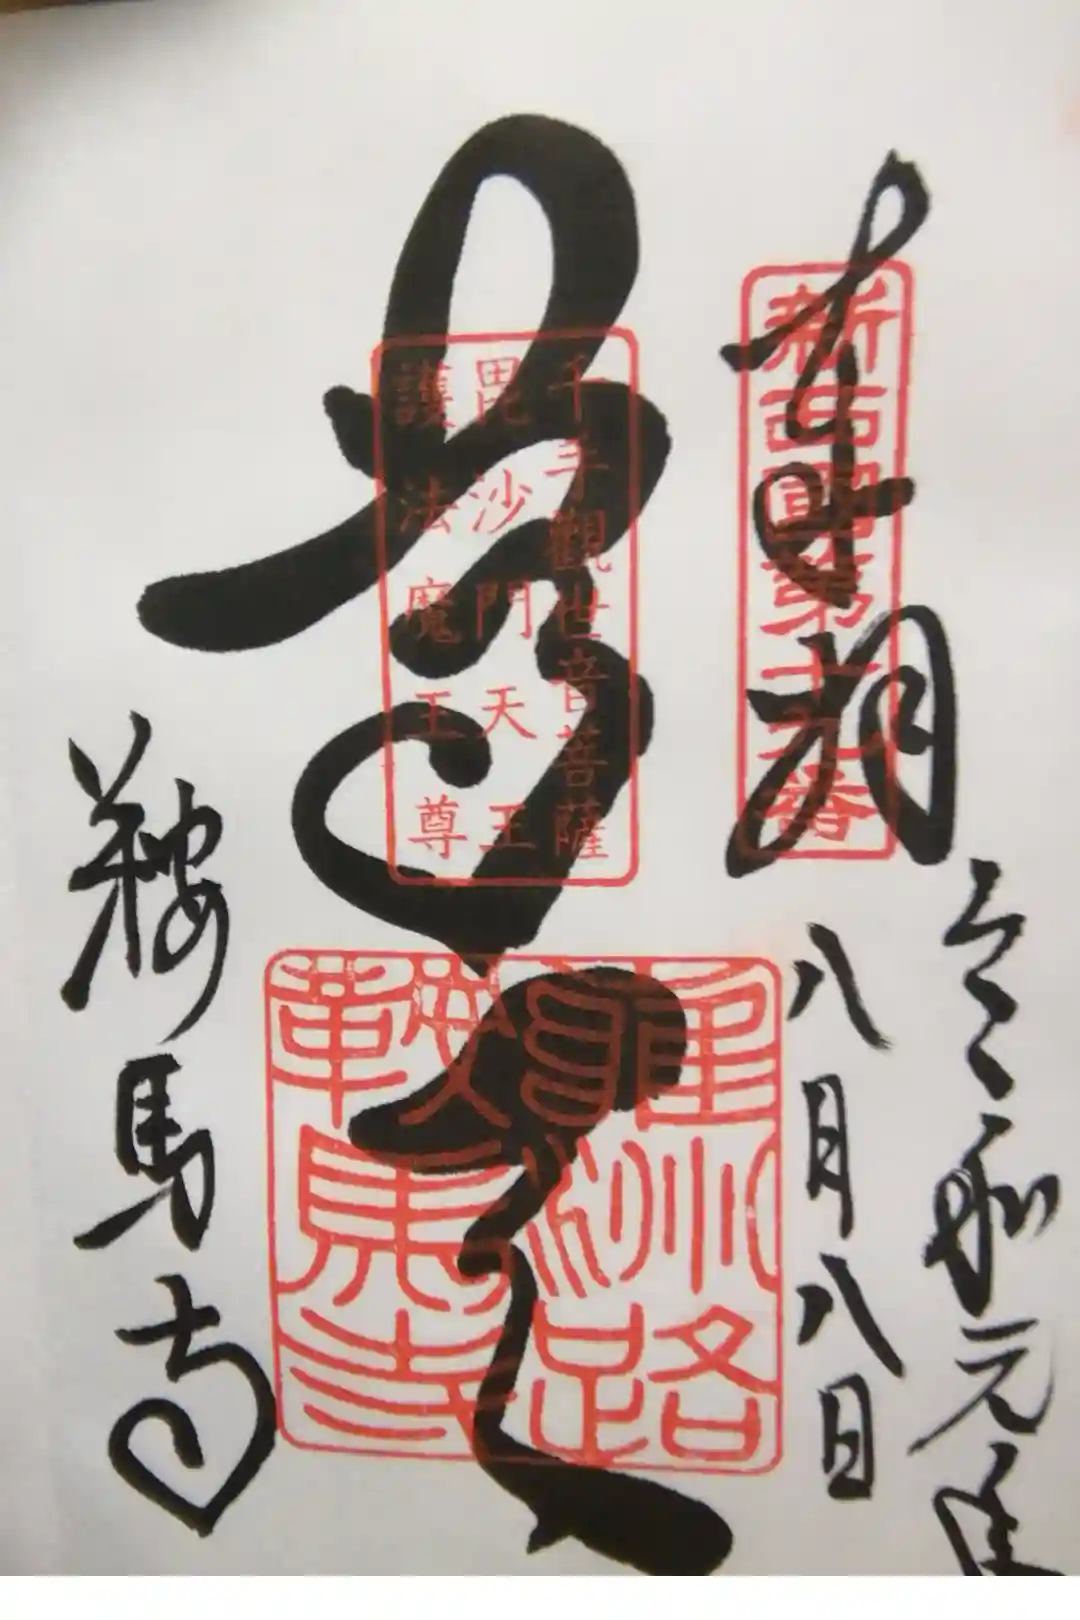 奉拝
新西國第十九番
令和元年
八月八日
尊天
千手觀世音菩薩
毘沙門天王
護法魔王尊
雍州路
鞍馬寺
鞍馬寺